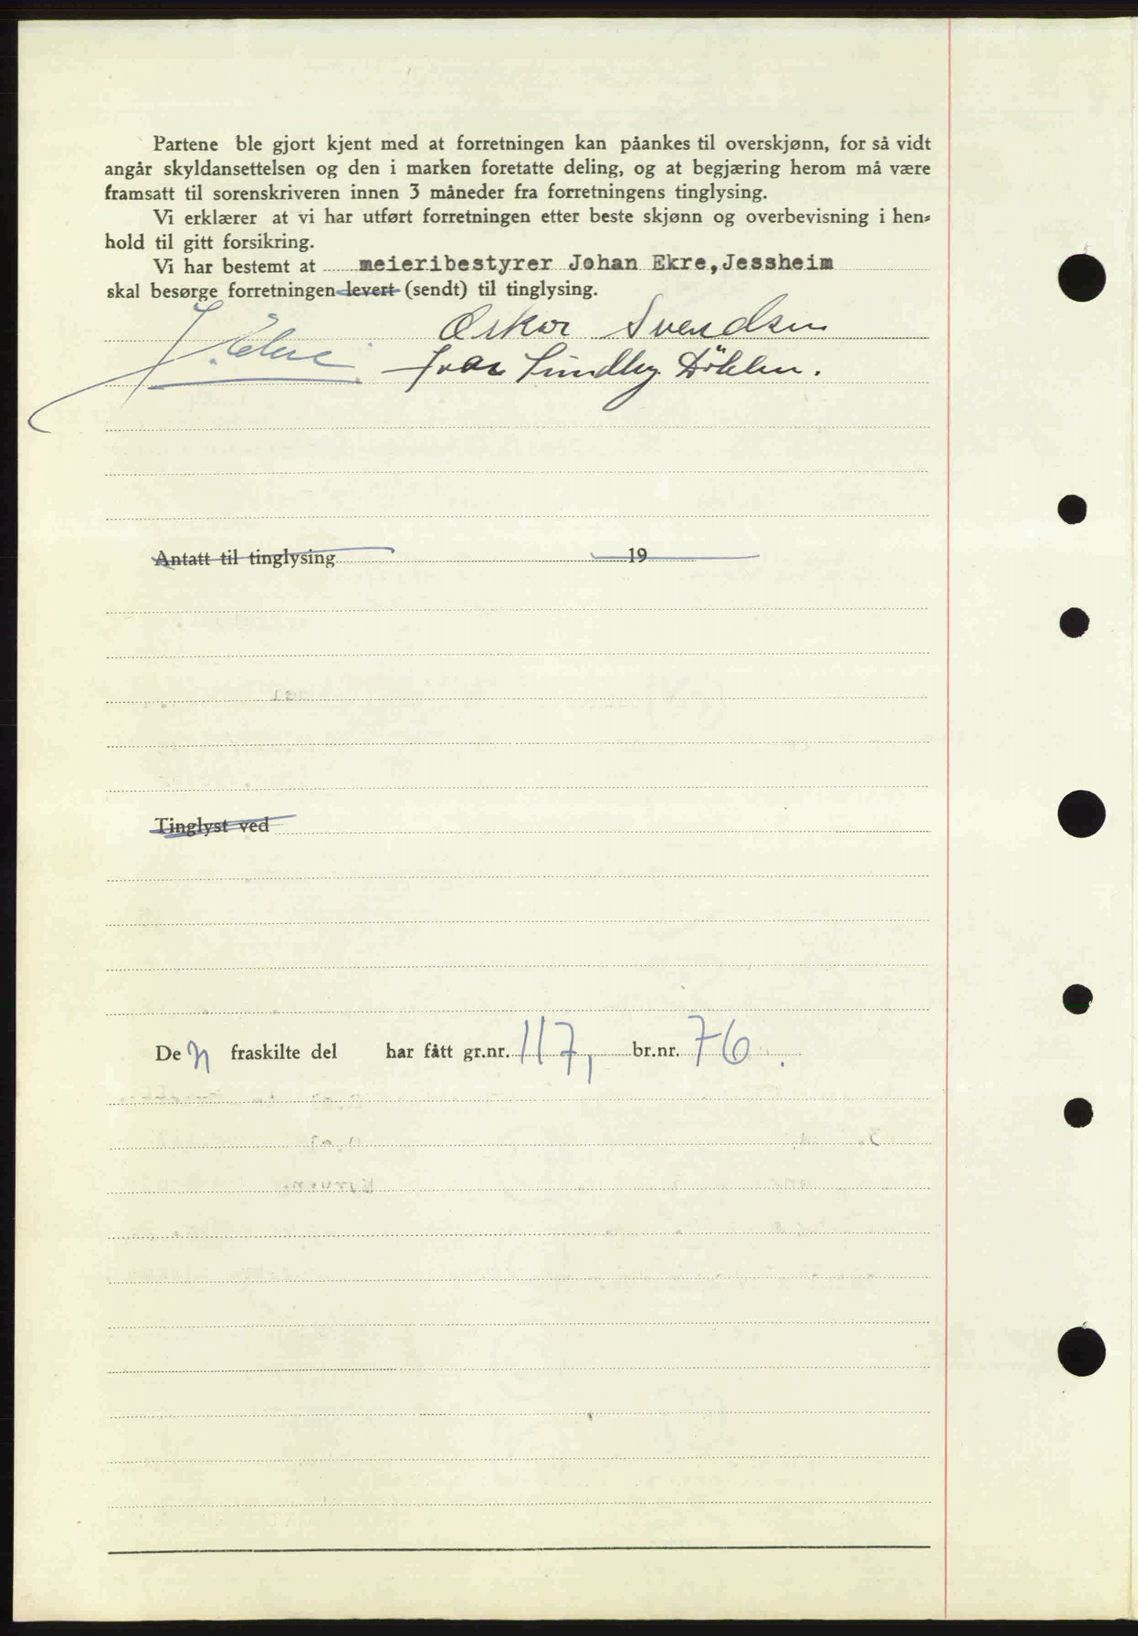 Partene ble gjort kjent med at forretningen kan påankes til overskjønn, for så vidt
angår skyldansettelsen og den i marken foretatte deling, og at begjæring herom må være
framsatt til sorenskriveren innen 3 måneder fra forretningens tinglysing.
Vi erklærer at vi har utført forretningen etter beste skjønn og overbevisning i hen-
hold til gitt forsikring.
Vi har bestemt at meieribestyrer Johan Ekre, Jessheim
skal besørge forretningen levert (sendt) til tinglysing.
Oskar Svendsen
Ivar Lindby
Antatt til tinglysing 19
Tinglyst ved
Den fraskilte del har fått gr.nr. 117, br.nr. 76.